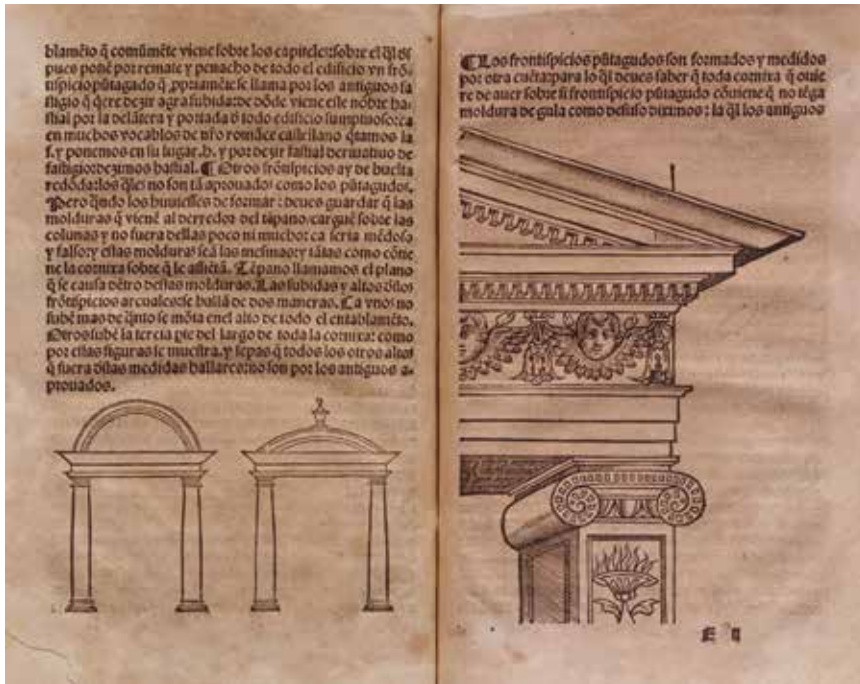 blamēto q̄ comūmēte viene sobre los capiteles: sobre el q̄l des
pues ponē por remate y penacho de todo el edificio vn frō-
tispicio pūtagudo q̄ ꝓpriamēte se llama por los antiguos fa
stigio q̄ q̄ere dezir agra subida: de dōde viene este nōbre ha-
stial por la delātera y portada d̄ todo edificio sumptuoso: ca
en muchos vocablos de nr̄o romāce castellano q̄tamos la
f. y ponemos en su lugar .h. y por dezir fastial deriuatiuo de
fastigio: dezimos hastial. ¶ Otros frōtispicios ay de buelta
redōda: los q̄les no son tā aprouados como los pūtagudos.
Pero q̄ndo los huuiesses de formar: deues guardar q̄ las
molduras q̄ vienē al derredor del tēpano: carguē sobre las
colunas y no fuera dellas poco ni mucho: ca seria mēdoso
y falso: y estas molduras seā las mesmas: y tātas como cōtie
ne la cornixa sobre q̄ se assiētā. Tēpano llamamos el plano
q̄ se causa dētro destas molduras. Las subidas y altos d̄stos
frōtispicios arcuales: se hallā de dos maneras. Ca vnos no
subē mas de q̄nto se mōta en el alto de todo el entablamēto.
Otros subē la tercia pte del largo de toda la cornixa: como
por estas figuras se muestra. y sepas q̄ todos los otros altos
q̄ fuera d̄stas medidas hallares: no son por los antiguos a-
prouados.
¶ Los frontispicios pūtagudos son formados y medidos
por otra cuēta: para lo q̄l deues saber q̄ toda cornixa q̄ ouie
re de auer sobre si frontispicio pūtagudo cōuiene q̄ no tēga
moldura de gula como desuso diximos: la q̄l los antiguos
E ij